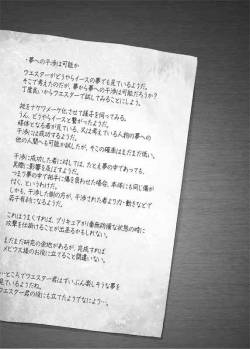 ・夢への干渉は可能か
ウエスターがどうやらイースの夢を見ているようだ。
そこで考えたのだが、夢から夢への干渉は可能だろうか?
丁度良いからウエスターで試してみることにしよう。
枕をナケワメーケ化させて様子を伺ってみる。
うん、どうやらイースと繋がったようだ。
媒体となる者が眠っていて、又は考えている人物の夢への
干渉には成功するようだ。
他の人間へも可能か試したが、その確率はまだまだ低い。
干渉に成功した者に対しては、たとえ夢の中であっても、
実際に影響を及ぼすようだ。
つまり夢の中で相手に傷を負わせた場合、本体にも同じ傷が
付く、というわけだ。
しかも、干渉した側の方が、干渉された者より力・動きなどで
若干有利になるようだ。
これはうまくすれば、プリキュアが無防備な状態の時に
攻撃を仕掛けることが出来るかもしれない。
まだまだ研究の余地があるが、完成すれば
メビウス様のお役に立てること間違いない。
…ところでウエスター君はずいぶん楽しそうな夢を
見ているようだね。
ウエスター君の役にも立てたようでなにより…。